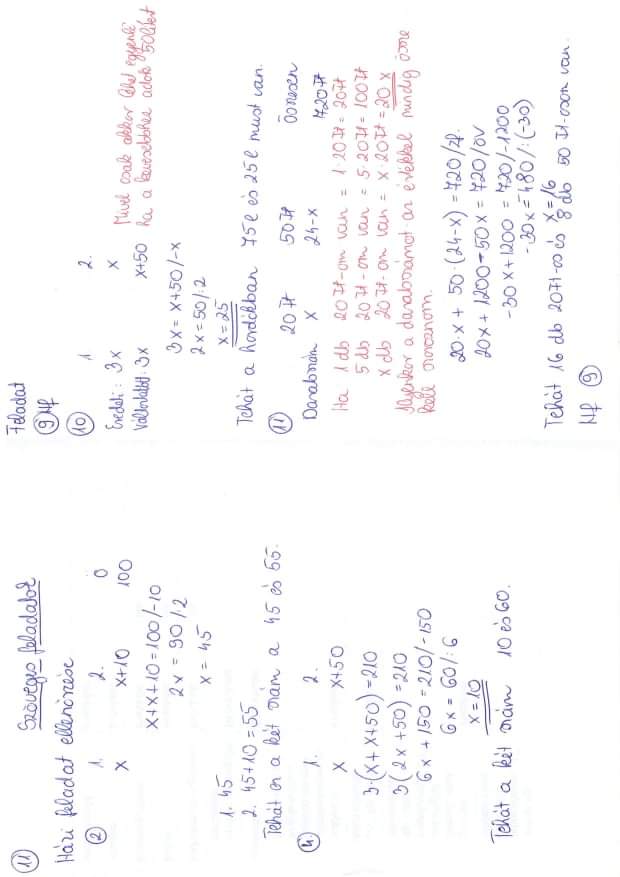 11
Szöveges feladatok
Házi feladat ellenőrzése
2
1. 2. Ö
x x+10 100
x+x+10=100/-10
2x = 90/:2
x = 45
1. 45
2. 45+10=55
Tehát ez a két szám a 45 és 55.
4.
1. 2.
x x+50
3·(x+x+50)=210
3(2x+50)=210
6x+150=210/-150
6x=60/:6
x=10
Tehát a két szám 10 és 60.
Feladat
9 Hf
10
1 2.
Eredeti: 3x x
Változtatott: 3x x+50
Mivel csak akkor lehet egyenlő
ha a kevesebbhez adok 50 litert
3x = x+50/-x
2x = 50/:2
x = 25
Tehát a hordókban 75l és 25l must van.
11
20 Ft 50 Ft összesen
Darabszám x 24-x 720 Ft
Ha 1 db 20 Ft-om van = 1·20 Ft = 20 Ft
5 db 20 Ft-om van = 5·20 Ft = 100 Ft
x db 20 Ft-om van = x 20 Ft = 20 x
Ilyenkor a darabszámot az értékkel mindig össze
kell szoroznom.
20·x + 50·(24-x) = 720/zf.
20x + 1200-50x = 720/öv
-30x+1200 = 720/-1200
-30x = -480/:(-30)
x = 16
Tehát 16 db 20Ft-os és 8 db 50 Ft-osom van.
Hf 9